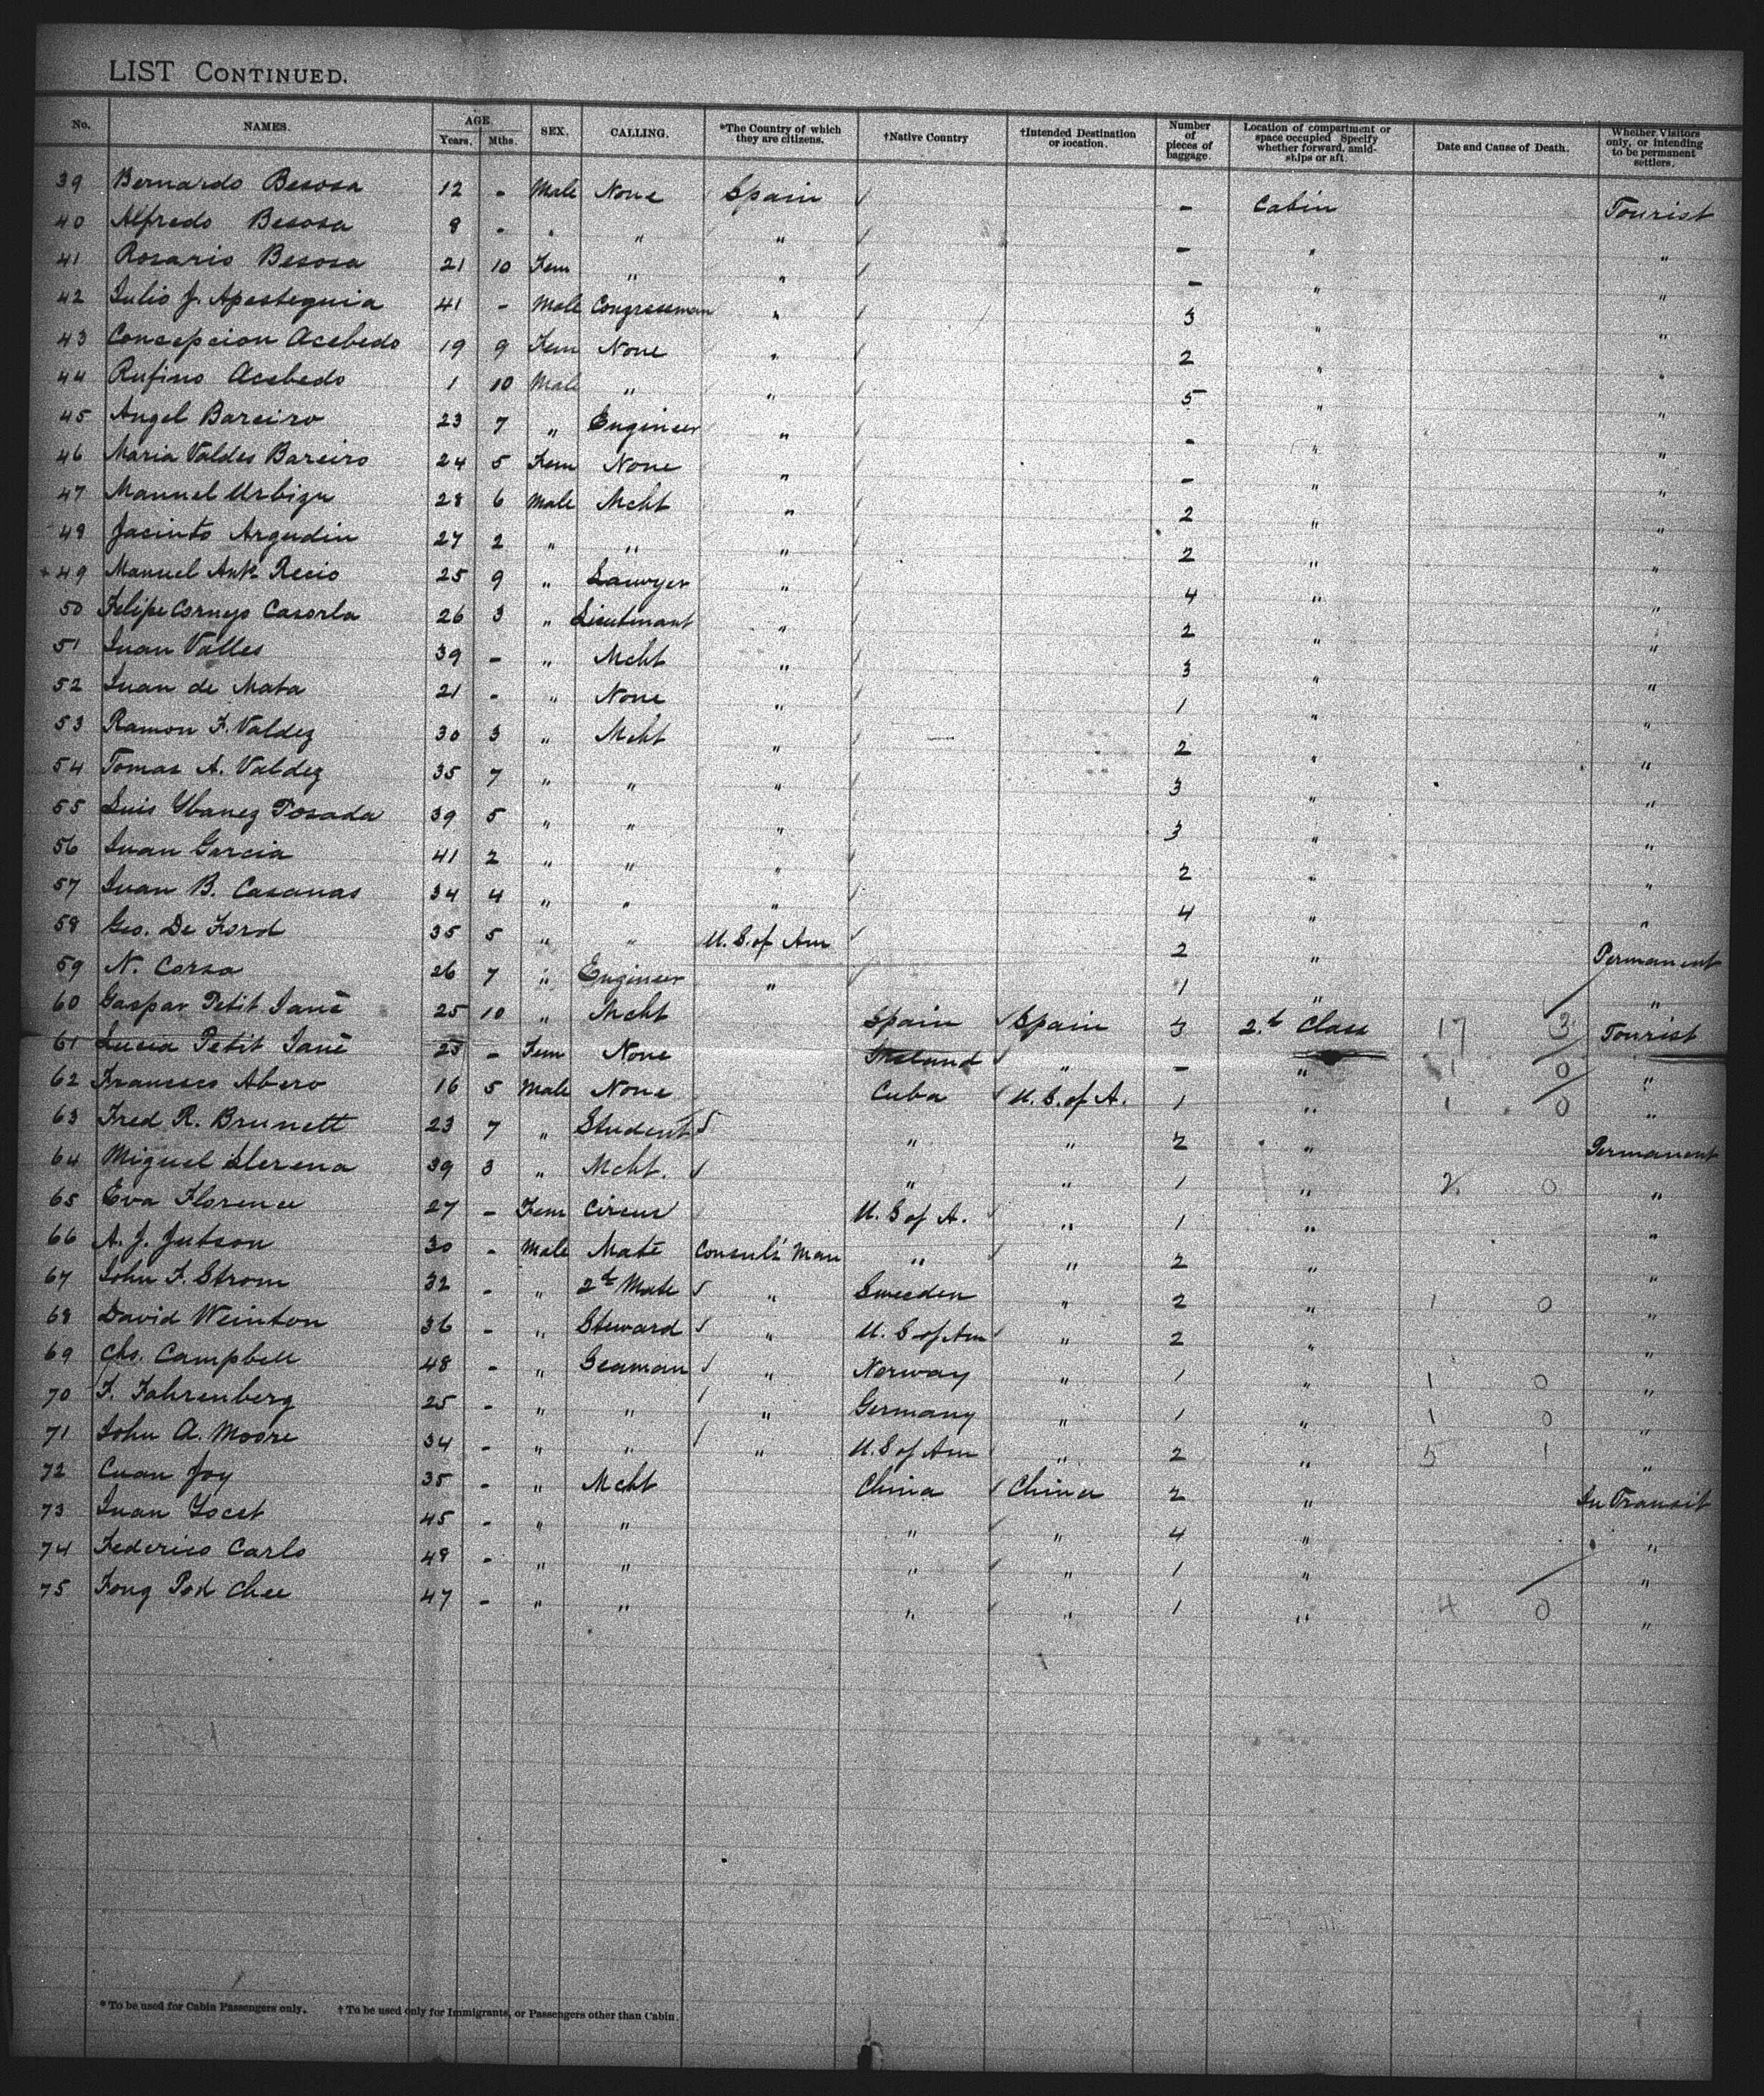 LIST CONTINUED.
No. NAMES. AGE. Years. Mths. SEX. CALLING. *The Country of which they are citizens. †Native Country †Intended Destination or location. Number of pieces of baggage. Location of compartment or space occupied Specify whether forward, amidships or aft. Date and Cause of Death. Whether Visitors only, or intending to be permanent settlers.
39 Bernardo Besosa 12 - Male None Spain - Cabin Tourist
40 Alfredo Besosa 8 - " " " - " "
41 Rosario Besosa 21 10 Fem " " - " "
42 Julio J. Apesteguia 41 - Male Congressman " 3 " "
43 Concepcion Acebedo 19 9 Fem None " 2 " "
44 Rufino Acebedo 1 10 Male " " 5 " "
45 Angel Bareiro 23 7 " Engineer " - " "
46 Maria Valdes Bareiro 24 5 Fem None " - " "
47 Manuel Urbizu 28 6 Male Mcht " 2 " "
48 Jacinto Argudin 27 2 " " " 2 " "
49 Manuel Ant. Recio 25 9 " Lawyer " 4 " "
50 Felipe Cornejo Casorla 26 3 " Lieutenant " 2 " "
51 Juan Valles 39 - " Mcht " 3 " "
52 Juan de Mata 21 - " None " 1 " "
53 Ramon F. Valdez 30 3 " Mcht " 2 " "
54 Tomas A. Valdez 35 7 " " " 3 " "
55 Luis Ybanez Posada 39 5 " " " 3 " "
56 Juan Garcia 41 2 " " " 2 " "
57 Juan B. Casanas 34 4 " " " 4 " "
58 Geo. De Ford 35 5 " " U. S. of Am 2 " Permanent
59 N. Corsa 26 7 " Engineer " 1 " "
60 Gaspar Petit Jané 25 10 " Mcht Spain Spain 3 2.d Class 17 3 Tourist
61 Lucia Petit Jané 25 - Fem None " - " 1 0 "
62 Francisco Abero 16 5 Male None Cuba U. S. of A. 1 " 1 0 "
63 Fred R. Brunett 23 7 " Student " " 2 " Permanent
64 Miguel Llerena 39 3 " Mcht. " " 1 " 2 0 "
65 Eva Florence 27 - Fem Circus U. S of A. " 1 " "
66 A. J. Jutson 30 - Male Mate Consul's Man " " 2 " "
67 John F. Strom 32 - " 2d Mate " Sweeden " 2 " 1 0 "
68 David Weinton 36 - " Steward " U. S of Am " 2 " "
69 Chs. Campbell 48 - " Seaman " Norway " 1 " 1 0 "
70 F. Fahrenberg 25 - " " " Germany " 1 " 1 0 "
71 John A. Moore 34 - " " " U. S of Am " 2 " 5 1 "
72 Cuan Joy 35 - " Mcht China China 2 " In Transit
73 Juan Locet 45 - " " " " 4 " "
74 Federico Carlo 48 - " " " " 1 " "
75 Fong Pod Chee 47 - " " " " 1 " 4 0 "
* To be used for Cabin Passengers only. † To be used only for Immigrants, or Passengers other than Cabin.